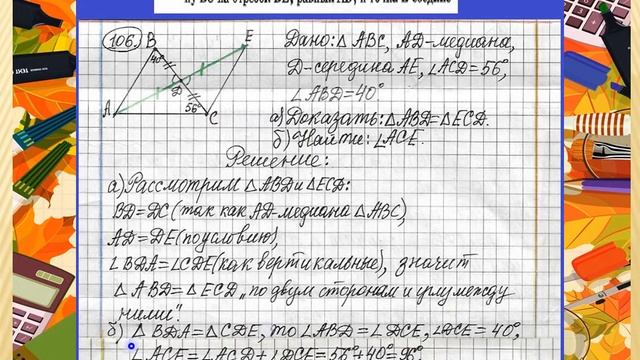 106.
B
E
40°
D
56°
A
C
Дано: △ ABC, AD-медиана,
D-середина AE, ∠ACD=56°,
∠ABD=40°
а) Доказать: △ABD=△ECD.
б) Найти: ∠ACE.
Решение:
а) Рассмотрим △ABD и △ECD:
BD=DC (так как AD-медиана △ABC),
AD=DE (по условию),
∠BDA=∠CDE (как вертикальные), значит
△ABD=△ECD „по двум сторонам и углу между
ними".
б) △BDA=△CDE, то ∠ABD=∠DCE, ∠DCE=40°,
∠ACE=∠ACD+∠DCE=56°+40°=96°